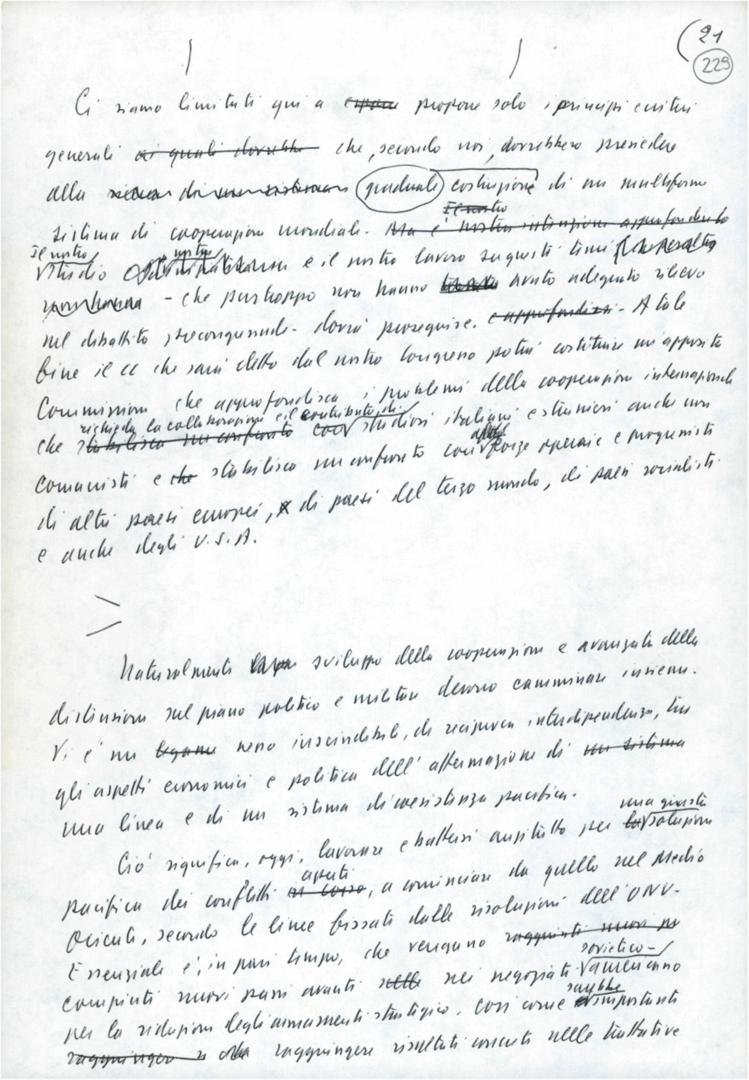 21
229
Ci siamo limitati qui a proporre solo i principi e criteri
generali ai quali dovrebbe che, secondo noi, dovrebbero presiedere
alla graduale costruzione di un multiforme
Il nostro
sistema di cooperazione mondiale. Ma è nostra intenzione approfondirlo
Il nostro nostro
studio e il nostro lavoro su questi temi
- che purtroppo non hanno avuto adeguato rilievo
nel dibattito precongressuale - dovrà proseguire. e approfondirsi. A tale
fine il CC che sarà eletto dal nostro Congresso potrà costituire un'apposita
Commissione che approfondisca i problemi della cooperazione internazionale
richieda la collaborazione e il contributo di
che stabilisca un confronto con studiosi italiani e stranieri anche non
comunisti e che stabilisca un confronto con forze operaie e progressiste
di altri paesi europei, di paesi del terzo mondo, di paesi socialisti
e anche degli U.S.A.
Naturalmente sviluppo della cooperazione e avanzata della
distensione sul piano politico e militare devono camminare insieme.
Vi è un legame nesso inscindibile, di reciproca interdipendenza, tra
gli aspetti economici e politica dell'affermazione di un sistema
una linea e di un sistema di coesistenza pacifica.
una giusta
Ciò significa, oggi, lavorare e battersi anzitutto per la soluzione
aperti
pacifica dei conflitti in corso, a cominciare da quello nel Medio
Oriente, secondo le linee fissate dalle risoluzioni dell'ONU.
Essenziale è, in pari tempo, che vengano raggiunti nuovi
sovietico-
compiuti nuovi passi avanti nelle nei negoziati americano
sarebbe
per la riduzione degli armamenti strategici. Così come importante
raggiungere raggiungere risultati concreti nelle trattative